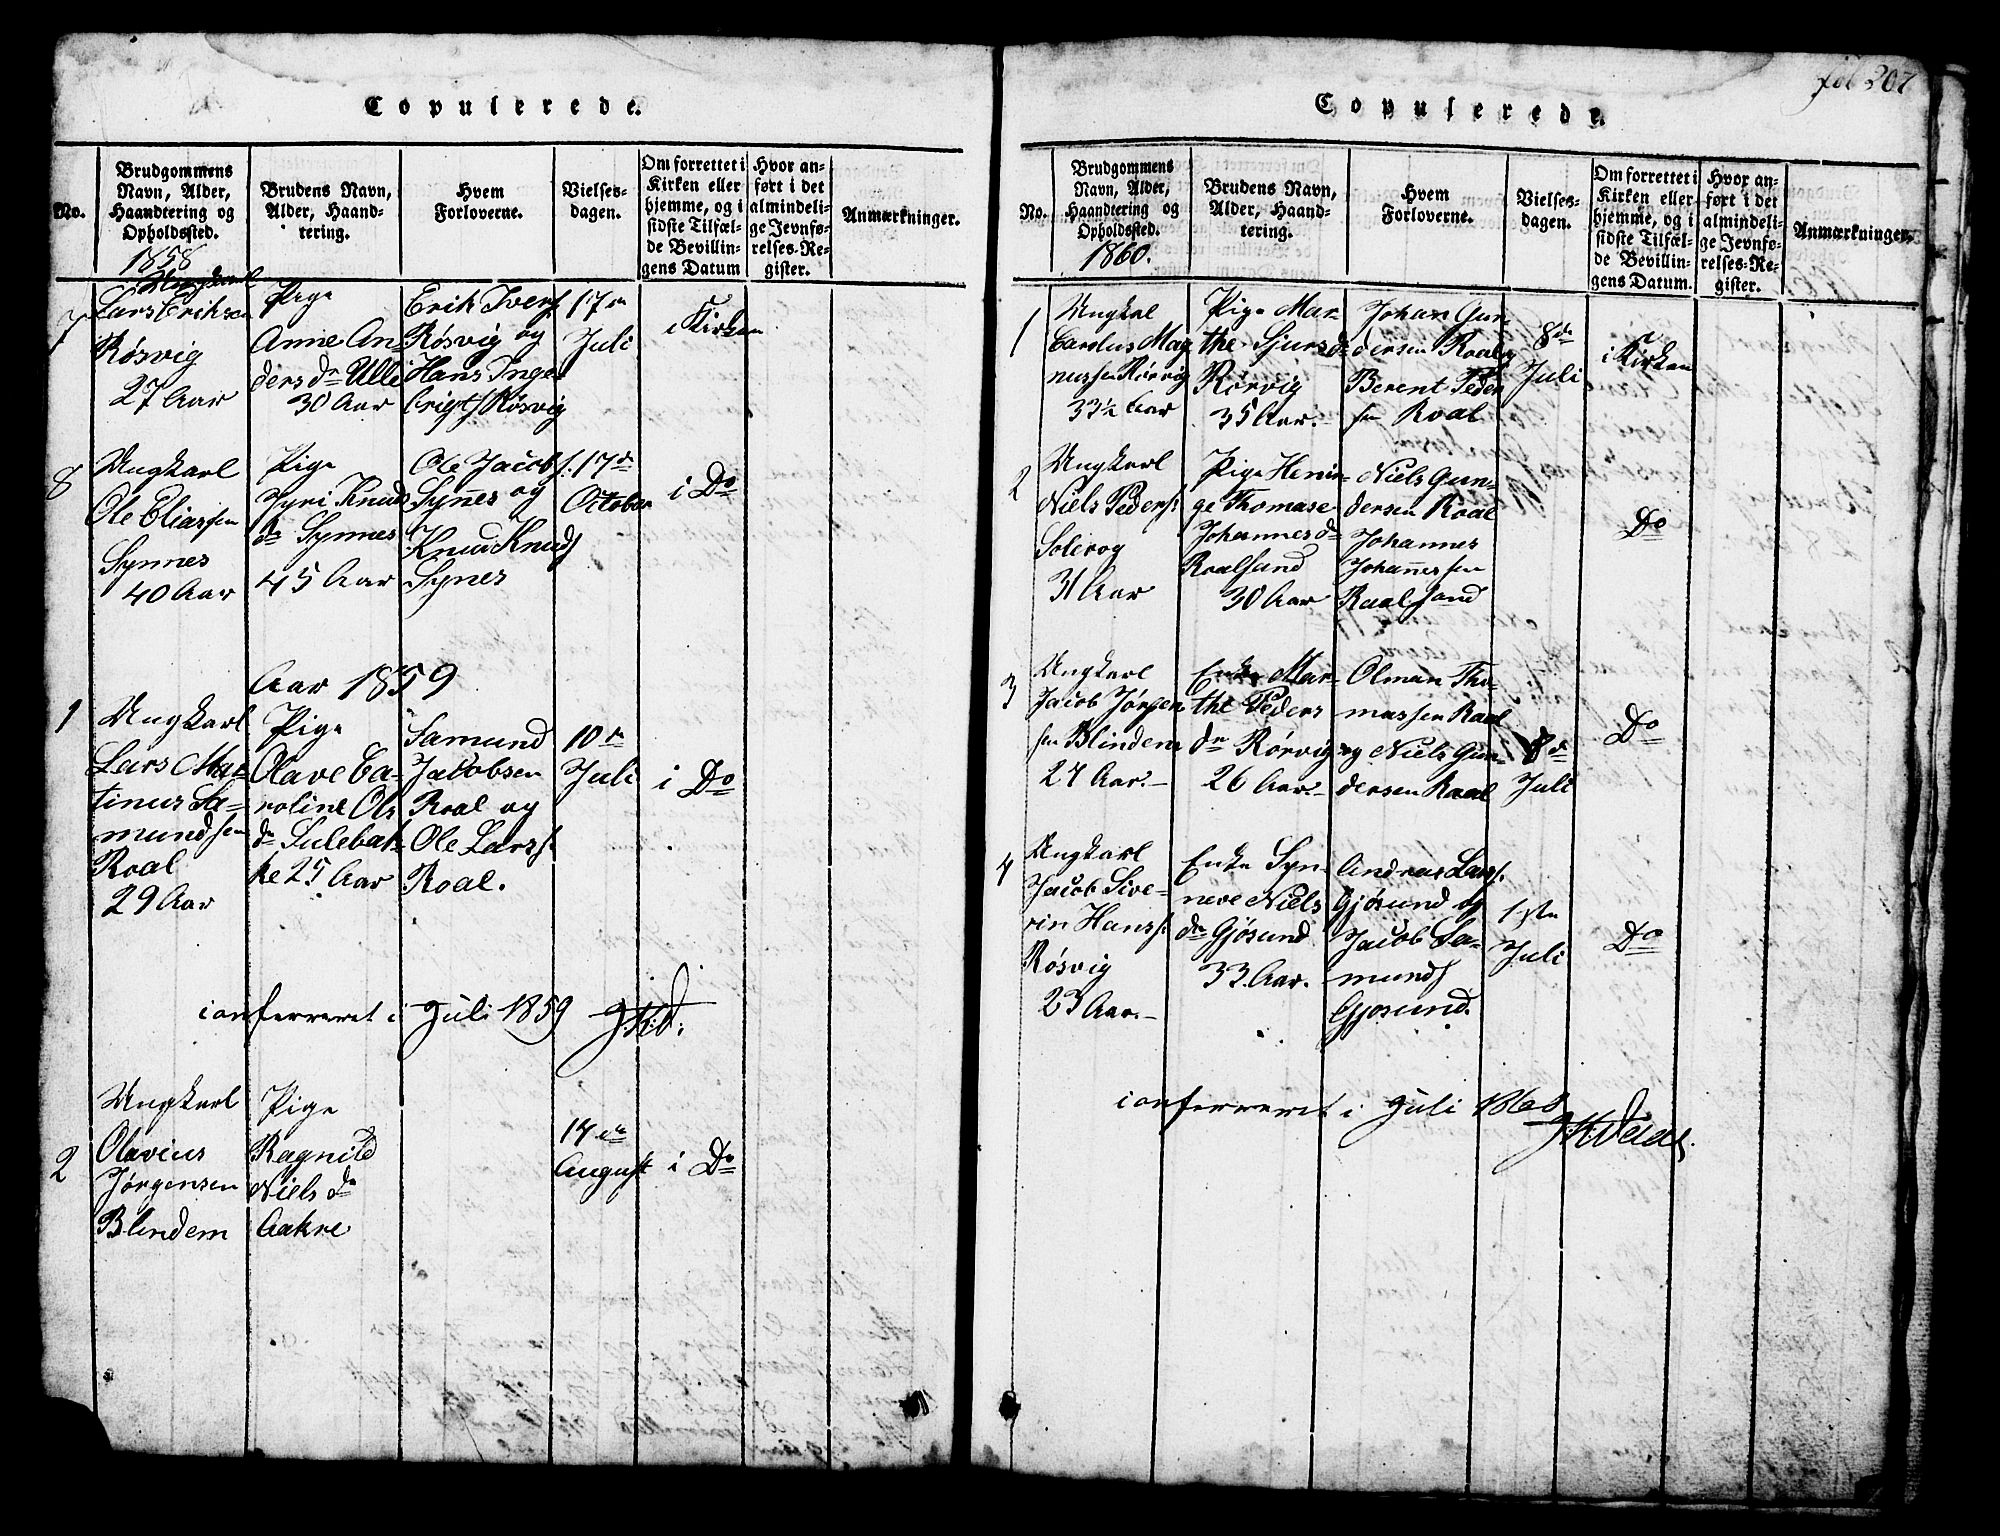 Copulerede.
No.
Brudgommens
Navn, Alder,
Haandtering og
Opholdssted.
1858
Brudens Navn,
Alder, Haand-
tering.
Hvem
Forloverne.
Vielses-
dagen.
Om forrettet i
Kirken eller
hjemme, og i
sidste Tilfæl-
de Bevillin-
gens Datum
Hvor an-
ført i det
almindeli-
ge Jevnfø-
relses-Re-
gister.
Anmærkninger.
7
Ungkarl
Lars Eriksen
Røsvig
27 Aar
Pige
Anne An-
ders dr Ulle
30 Aar
Erik Ivers
Røsvig og
Hans Inge-
brigts Røsvig
17de
Juli
i Kirken
8
Ungkarl
Ole Eliassen
Synnes
40 Aar
Pige
Jyri Knuds
dr Synnes
45 Aar
Ole Jacobs.
Synes og
Knud Knuds
Synes
17de
October
i Do
Aar 1859
1
Ungkarl
Lars Mar-
tinus Sa-
mundsen
Roal
29 Aar
Pige
Olave Ca-
roline Ols
dr Sulebak-
ke 25 Aar
Samund
Jacobsen
Roal og
Ole Larss.
Roal.
10de
Juli
i Do
conferreret i Juli 1859
2
Ungkarl
Olavius
Jørgensen
Blindem
Pige
Ragnild
Niels dr
Aakre
14de
August
i Do
fol 207
Copulerede.
No.
Brudgommens
Navn, Alder,
Haandtering og
Opholdssted.
1860.
Brudens Navn,
Alder, Haand-
tering.
Hvem
Forloverne.
Vielses-
dagen.
Om forrettet i
Kirken eller
hjemme, og i
sidste Tilfæl-
de Bevillin-
gens Datum.
Hvor an-
ført i det
almindeli-
ge Jevnfø-
relses-Re-
gister.
Anmærkninger.
1
Ungkal
Carolus Mag
nussen Rørvig
33½ Aar
Pige Mar-
the Sjursd
Rørvig
35 Aar.
Johan Gun
dersen Roal og
Berent Peder
sen Roal
8de
Juli
i Kirken
2
Ungkarl
Niels Peders.
Solevog
31 Aar
Pige Henin-
ge Thomase
Johannesd
Roalsand
30 Aar
Niels Gun-
dersen Roal
Johannes
Johannessen
Roalsand
Do
3
Ungkarl
Jacob Jørgen
sen Blindem
27 Aar.-
Enke Mar-
the Peders
dr Rørvig
26 Aar.-
Olman Tho-
massen Roal
og Niels Gun-
dersen Roal
8de
Juli
Do
4
Ungkarl
Jacob Sive-
rin Hanss.
Røsvig
23 Aar.-
Enke Syn-
neve Niels
dr Gjøsund
33 Aar.
Andreas Larss.
Gjøsund og
Jacob Sa-
munds
Gjøsund.
1ste
Juli
Do
conferreret i Juli 1860